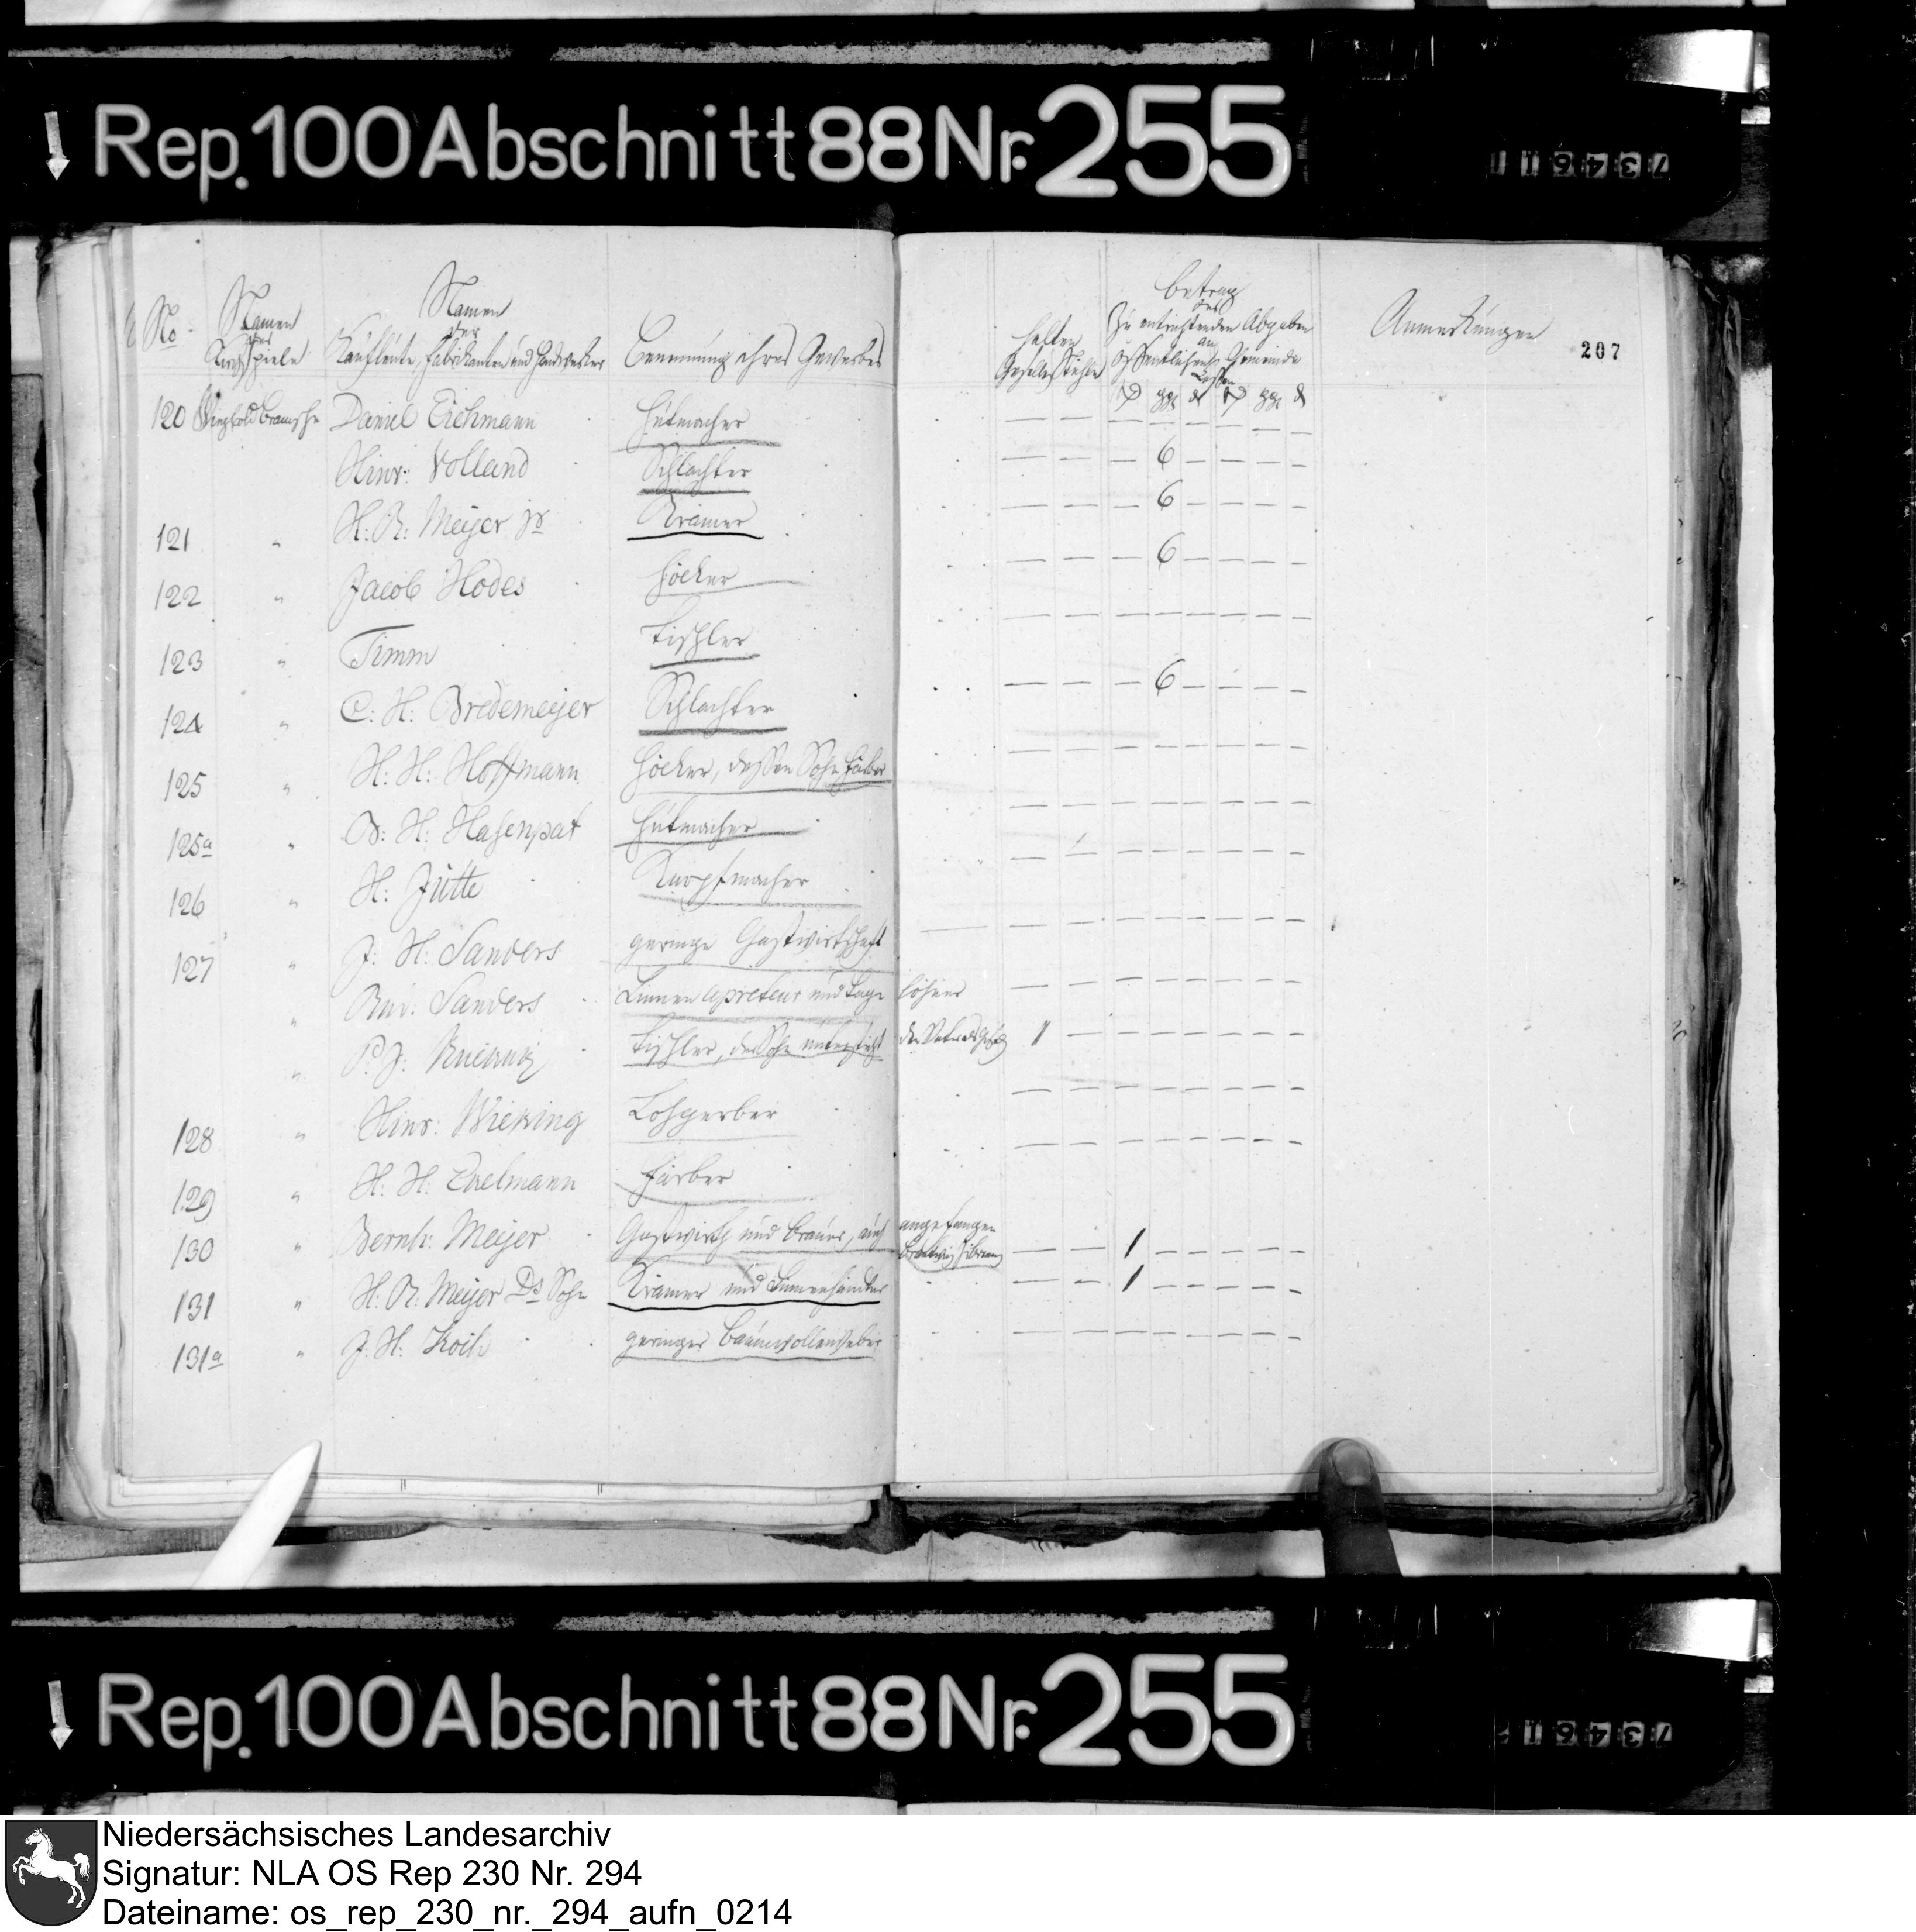 Rep. 100 Abschnitt 88 Nr. 255
No
Namen des Kirchspiels
Namen der Kaufleute, Fabrikanten und Handwerker
Benennung ihres Gewerbes
halten Gesellen
Betrag des
zu entrichtenden Abgaben
an
öffentlichen Gemeinde
Lasten
Anmerkungen
207
120 Wiegbold Bramsche Daniel Eichmann Hutmacher — — — — — — — —
Hinr: Volland Schlachter — — — 6 — — — —
121 " H: R: Meyer jr Krämer — — — 6 — — — —
122 " Jacob Hodes Höcker — — — 6 — — — —
123 " Timm Tischler — — — — — — — —
124 " C: H: Bredemeyer Schlachter — — — 6 — — — —
125 " H: H: Hoffmann Höcker, dessen Sohn Färber — — — — — — — —
125a " B: H: Hasenpat Hutmacher — — — — — — — —
126 " H: Jütte Knopfmacher — — — — — — — —
127 " J: H: Sanders geringe Gastwirtschaft — — — — — — — —
" Sanders Linnen Apreteur und Tage löhner — — — — — — — —
" P: J: Tischler, der Sohn 1 — — — — — — —
128 " Hinr: Wieking Lohgerber — — — — — — — —
129 " H: H: Färber — — — — — — — —
130 " Bernh: Meyer Gastwirth und Brauer, auch angefangen — — 1 — — — — —
131 " H: R: Meyer Ds Sohn Krämer und Linnenhändler — — 1 — — — — —
131a " J: H: Koch geringer Baumwollenweber — — — — — — — —
Rep. 100 Abschnitt 88 Nr. 255
Niedersächsisches Landesarchiv
Signatur: NLA OS Rep 230 Nr. 294
Dateiname: os_rep_230_nr._294_aufn_0214